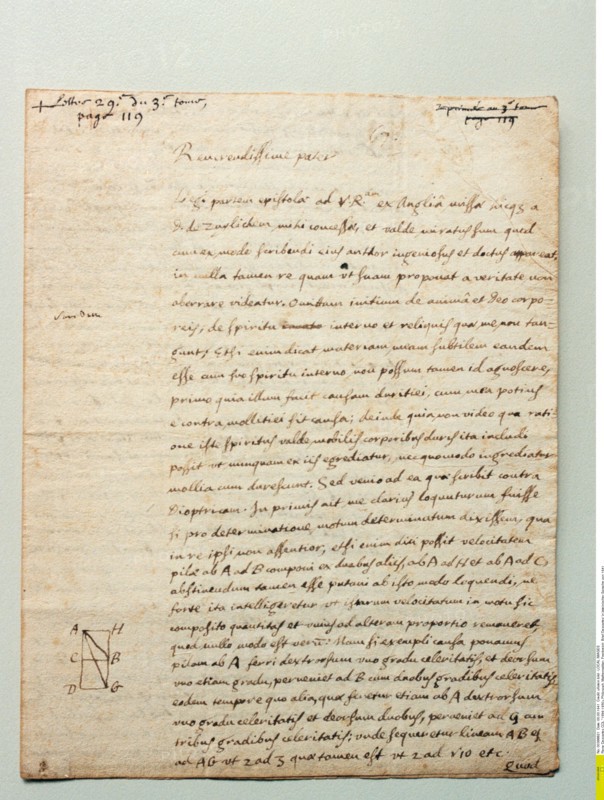 + Lettre 29.e du 3.e tome,
page 119
Imprimée au 3.e tome
page 119
Reverendissime pater
Legi partem epistolæ ad V.R.am ex Angliâ missæ hicq a
D. de Zuylichem mihi concessæ, et valde miratus sum quod
cum ex modo scribendi eius author ingeniosus et doctus appareat,
in nulla tamen re quam vt suam proponat a veritate non
aberrare videatur. Omittam initium de animâ et deo corpo-
reis, de spiritu interno et reliquis quæ me non tan-
gunt; Etsi enim dicat materiam meam subtilem eandem
esse cum suo spiritu interno, non possum tamen id agnoscere,
primo quia illum facit causam duritiei, cum mea potius
e contra mollitiei sit causa; deinde quia non video qua rati-
one iste spiritus valde mobilis corporibus duris ita includi
possit vt nunquam ex iis egrediatur, nec quomodo ingrediatur
mollia cum durescunt. Sed venio ad ea quæ scribit contra
Dioptricam. In primis ait me clarius loquuturum fuisse
si pro determinatione motum determinatum dixissem, qua
in re ipsi non assentior, etsi enim dici possit velocitatem
pilæ ab A ad B componi ex duabus aliis, ab A ad H et ab A ad C
abstinendum tamen esse putavi ab isto modo loquendi, ne
forte ita intelligeretur vt istarum velocitatum in motu sic
composito quantitas et vnius ad alteram proportio remaneret,
quod nullo modo est verū. Nam si exempli causa ponamus
pilam ab A ferri dextrorsum vno gradu celeritatis, et deorsum
vno etiam gradu, perveniet ad B cum duobus gradibus celeritatis,
eodem tempore quo alia, quæ feretur etiam ab A dextrorsum
vno gradu celeritatis et deorsum duobus, perveniet ad G cum
tribus gradibus celeritatis; vnde sequeretur lineam AB esse
ad AG vt 2 ad 3 quæ tamen est vt 2 ad r10 etc.
Quod
A H
C B
D G